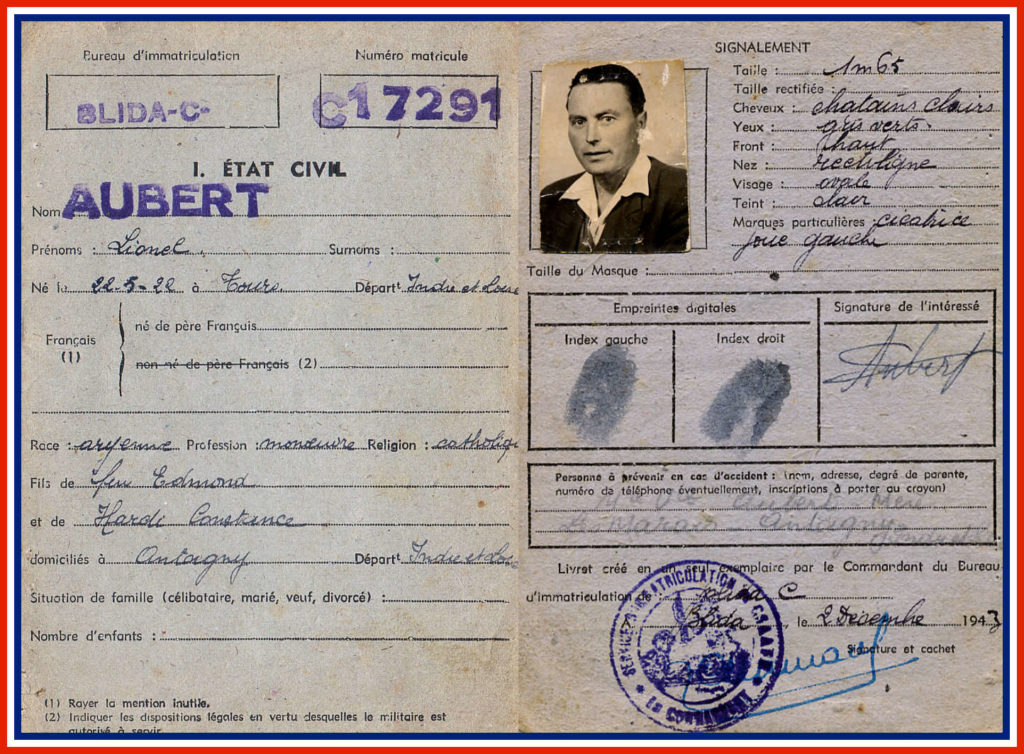 Bureau d'immatriculation
Numéro matricule
BLIDA-C-
C17291
I. ÉTAT CIVIL
Nom AUBERT
Prénoms : Lionel Surnoms :
Né le 22-5-22 à Tours. Départ^t Indre et Loire
Français
(1)
né de père Français
non né de père Français (2)
Race : aryenne Profession : manœuvre Religion : catholiq
Fils de feu Edmond
et de Hardi Constance
domiciliés à Antogny Départ^t Indre et Loi
Situation de famille (célibataire, marié, veuf, divorcé) :
Nombre d'enfants :
(1) Rayer la mention inutile.
(2) Indiquer les dispositions légales en vertu desquelles le militaire est
autorisé à servir.
SIGNALEMENT
Taille : 1m65
Taille rectifiée :
Cheveux : chatains clairs
Yeux : gris verts.
Front : haut
Nez : rectiligne
Visage : ovale
Teint : clair
Marques particulières : cicatrice
joue gauche
Taille du Masque :
Empreintes digitales
Signature de l'intéressé
Index gauche
Index droit
Aubert
Personne à prévenir en cas d'accident : (nom, adresse, degré de parenté,
numéro de téléphone éventuellement, inscriptions à porter au crayon)
Antogny
Livret créé en un seul exemplaire par le Commandant du Bureau
d'immatriculation de : Blida C
A Blida, le 2 Décembre 1943
Signature et cachet
SERVICE D'IMMATRICULATION
LE COMMANDANT